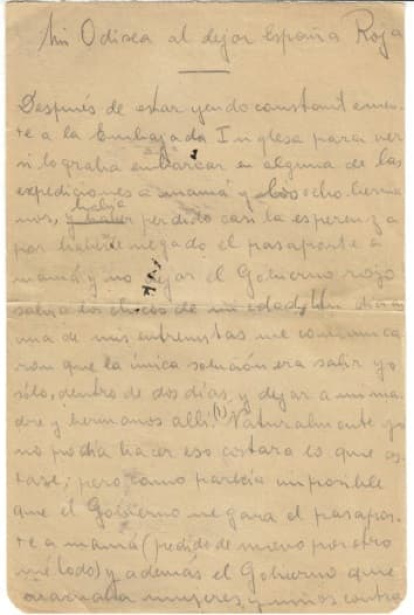 Mi Odisea al dejar España Roja
Después de estar yendo constantemen-
te a la Embajada Inglesa para ver
si lograba embarcar en alguna de las
expediciones a mamá y los ocho herma
nos, había perdido casi la esperanza
por haberle negado el pasaporte a
mamá y no dejar el Gobierno rojo
salir a los chicos de mi edad. Un día en
una de mis entrevistas me comunica
ron que la única solución era salir yo
sólo, dentro de dos días, y dejar a mi ma
dre y hermanos allí. (1) Naturalmente yo
no podía hacer eso costara lo que cos
tase; pero como parecía imposible
que el Gobierno negara el pasapor-
te a mamá (pedido de nuevo por otro
método) y además el Gobierno que
mujeres y niños contra